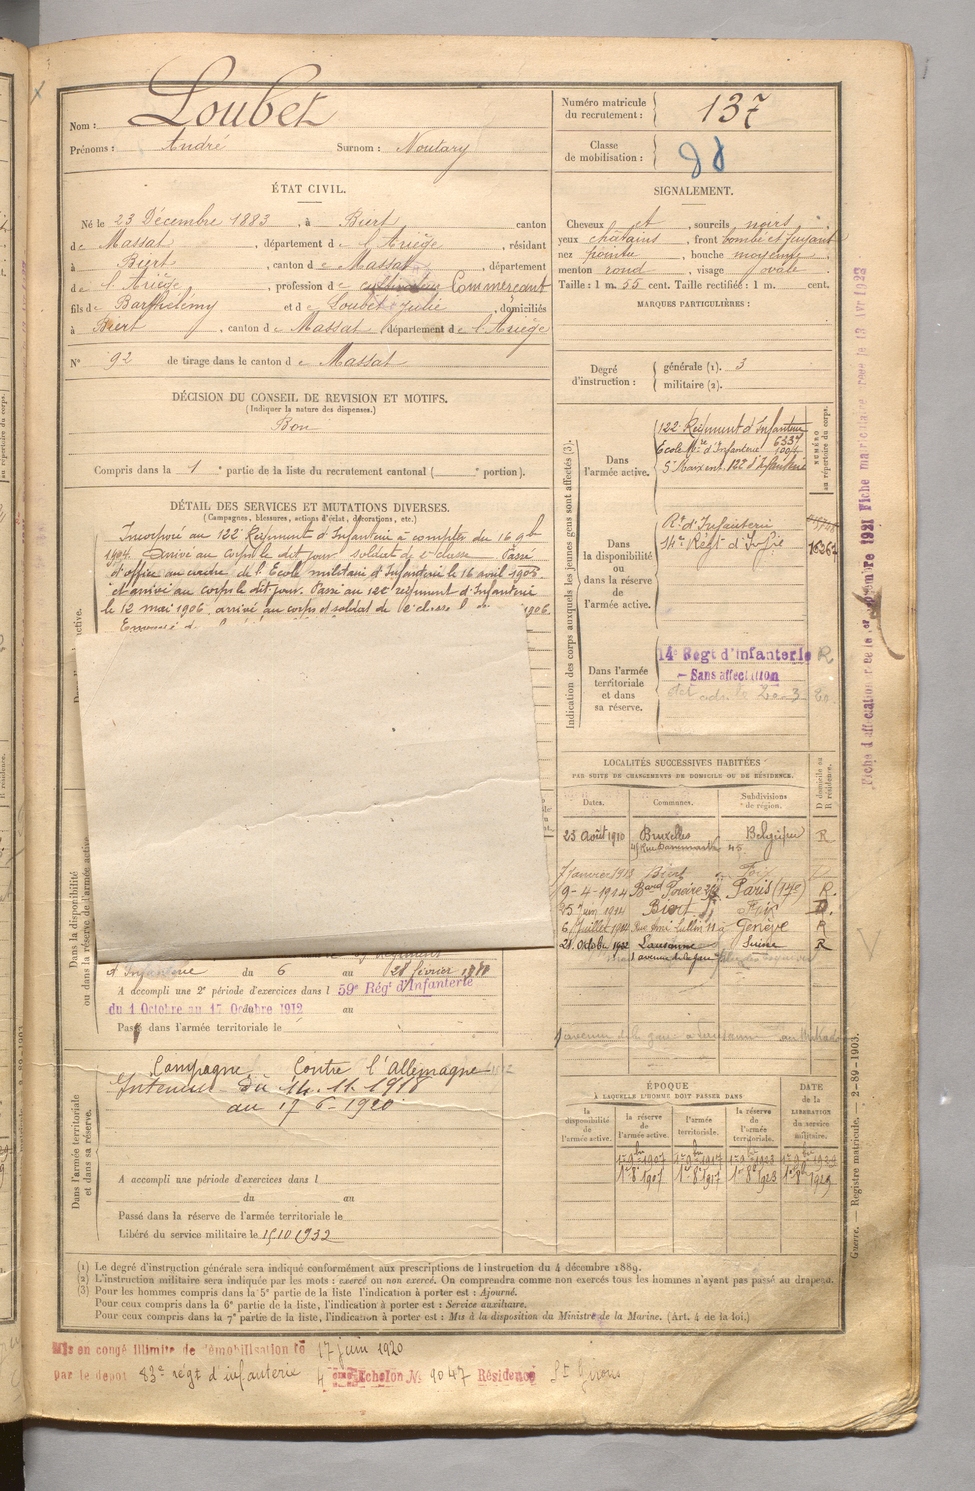 Nom : Loubet
Prénoms : André Surnom : Noutary
Numéro matricule du recrutement : 137
Classe de mobilisation :
ÉTAT CIVIL.
Né le 23 Décembre 1883, à Biert canton
de Massat, département de l'Ariège, résidant
à Biert, canton de Massat, département
de l'Ariège, profession de cultivateur Commerçant
fils de Barthélémy et de Loubet Julie, domiciliés
à Biert, canton de Massat, département de l'Ariège
N° 92 de tirage dans le canton de Massat
SIGNALEMENT.
Cheveux et, sourcils noirs
yeux châtains, front bombé et fuyant
nez pointu, bouche moyenne
menton rond, visage ovale
Taille : 1 m. 55 cent. Taille rectifiée : 1 m. cent.
MARQUES PARTICULIÈRES :
Degré d'instruction : générale (1). 3
militaire (2).
DÉCISION DU CONSEIL DE REVISION ET MOTIFS.
(Indiquer la nature des dispenses.)
Bon
Compris dans la 1e partie de la liste du recrutement cantonal ( e portion).
DÉTAIL DES SERVICES ET MUTATIONS DIVERSES.
(Campagnes, blessures, actions d'éclat, décorations, etc.)
Incorporé au 122e Régiment d'Infanterie à compter du 16 9bre
1904. Arrivé au corps le dit jour soldat de 2e classe. Passé
d'office au cadre de l'Ecole militaire d'Infanterie le 16 avril 1905
et arrivé au corps le dit jour. Passé au 122e régiment d'Infanterie
le 12 mai 1906, arrivé au corps et soldat de 2e classe l 1906
Indication des corps auxquels les jeunes gens sont affectés (3).
NUMÉRO au répertoire du corps.
Dans l'armée active.
122e Régiment d'Infanterie
Ecole Mre d'Infanterie
St Maixent. 122e d'Infanterie
Dans la disponibilité ou dans la réserve de l'armée active.
Rt d'Infanterie
14e Régt d'Infrie
Dans l'armée territoriale et dans sa réserve.
14e Régt d'Infanterie R
Sans affectation
LOCALITÉS SUCCESSIVES HABITÉES
PAR SUITE DE CHANGEMENTS DE DOMICILE OU DE RÉSIDENCE.
Dates. Communes. Subdivisions de région. D domicile ou R résidence.
23 Août 1910 Bruxelles Belgique R
7 Janvier 1913 Biert Foix
9-4-1914 Bard Poreire Paris (14e) R.
25 Juin 1914 Biert Foix D.
6 Juillet 1914 Genève R
21 Octobre 1922 Lausanne Suisse R
1 avenue de la gare
Dans la disponibilité ou dans la réserve de l'armée active
d'Infanterie du 6 au 28 février
A accompli une 2e période d'exercices dans l 59e Régt d'Infanterie
du 1 Octobre au 17 Octobre 1912 au
Passé dans l'armée territoriale le
Dans l'armée territoriale et dans sa réserve.
Campagne Contre l'Allemagne
Intérieur du 14.11.1918
au 17-6-1920
A accompli une période d'exercices dans l
du au
Passé dans la réserve de l'armée territoriale le
Libéré du service militaire le 15 10 1932
ÉPOQUE
À LAQUELLE L'HOMME DOIT PASSER DANS
la disponibilité de l'armée active. la réserve de l'armée active. l'armée territoriale. la réserve de l'armée territoriale.
DATE de la LIBÉRATION du service militaire.
1er 9bre 1907 1er 9bre 1917 1er 9bre 1923
1er 8e 1907 1er 8e 1917 1er 8e 1923 1er 8e 1929
(1) Le degré d'instruction générale sera indiqué conformément aux prescriptions de l'instruction du 4 décembre 1889.
(2) L'instruction militaire sera indiquée par les mots : exercé ou non exercé. On comprendra comme non exercés tous les hommes n'ayant pas passé au drapeau.
(3) Pour les hommes compris dans la 5e partie de la liste l'indication à porter est : Ajourné.
Pour ceux compris dans la 6e partie de la liste, l'indication à porter est : Service auxiliaire.
Pour ceux compris dans la 7e partie de la liste, l'indication à porter est : Mis à la disposition du Ministre de la Marine. (Art. 4 de la loi.)
Mis en congé illimité de démobilisation le 17 juin 1920
Par le dépôt 83e régt d'infanterie 4eme Echelon N° 9047 Résidence St Girons
Guerre. — Registre matricule. — 2-89-1903.